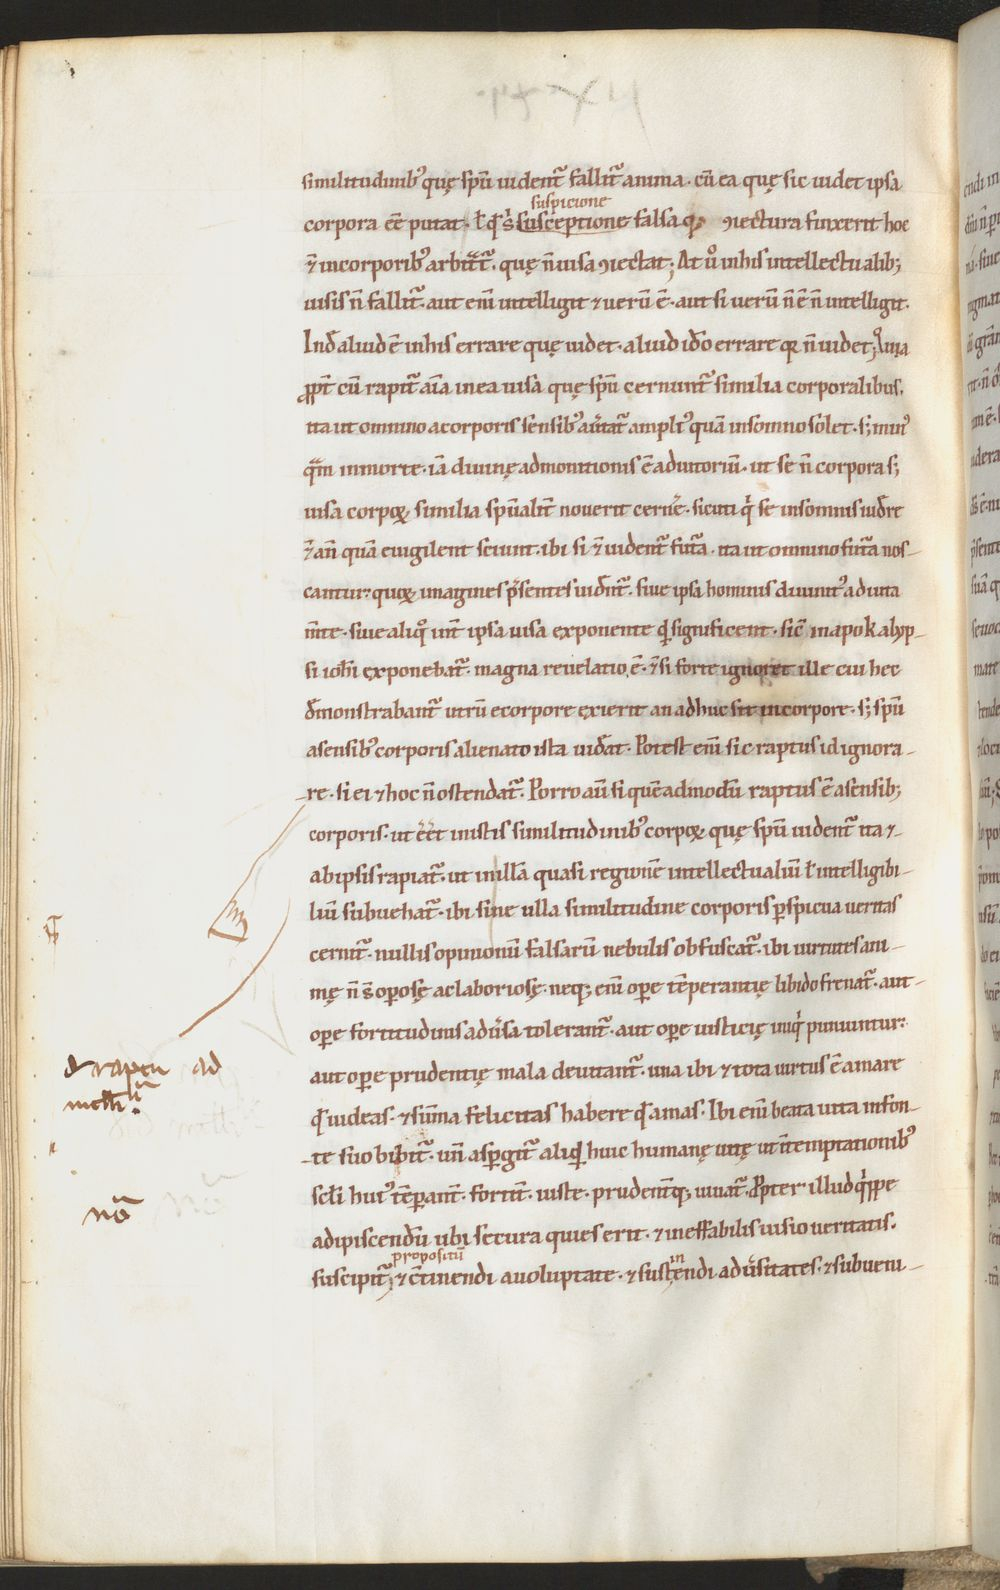 similitudinib' quę sp̅u uident̅ fallit̅ anima. cū ea quę sic uidet ipsa
suspicione
corpora eē putat. ł q̅ s̉ susceptione falsa q; ꝯiectura finxerit hoc
⁊ incorporib' arbit̅t̅. quę n̅ uisa ꝯiectat; At ů inhis intellectualib;
uisis n̅ fallit̅. aut em̅ intelligit ⁊ uerū ē. aut si uerū n̅ ē n̅ intelligit.
Ind̅ aliud ē inhis errare quę uidet. aliud id̅o errare q̅ n̅ uidet;
ꝓpt̅ cū rapit̅ aīa in ea uisa quę sp̅u cernunt̅ similia corporalibus.
ita ut omnino acorporis sensib' au̅tat̅ ampli' quā insomno solet. s; min'
q̅m inmorte. iā diuinę admonitionis ē adiutoriū. ut se n̅ corpora s;
uisa corpoꝝ similia sp̅ualit̅ nouerit cerne̅. sicuti q̉ se insomnis uid̅re
⁊ an̅ quā euigilent sciunt. ibi si ⁊ uident̅ fut̅a. ita ut omnino fut̅a nos-
cantur: quoꝝ imagines p̅sentes uid̅nt̅. siue ipsa hominis diuinit' adiuta
m̅te. siue aliq̊ int̅ ipsa uisa exponente q̅ significent. sic̅ inapokalyp-
si ioh̅i exponebat̅. magna reuelatio ē. ⁊ si forte ignoret ille cui hec
d̅monstrabant̅ utrū ecorpore exierit an adhuc sit incorpore. s; sp̅u
asensib' corporis alienato ista uid̅at. Potest em̅ sic raptus id ignora-
re. si ei ⁊ hoc n̅ ostendat̅. Porro au̅ si quēadmodū raptus ē asensib;
corporis. ut ēēt inistis similitudinib' corpoꝝ quę sp̅u uident̅ ita ⁊
abipsis rapiat̅. ut inillā quasi regionē intellectualiū ł intelligibi-
liū subuehat̅. ibi sine ulla similitudine corporis ꝑspicua ueritas
cernit̅. nullis opinionū falsarū nebulis obfuscat̅. ibi uirtutes ani-
mę n̅ s̅ oꝑosę ac laboriosę. neq; em̅ oꝑe tēperantię libido frenat̅. aut
oꝑe fortitudinis adu̅sa tolerant̅. aut oꝑe iusticię iniq̉ puniuntur:
aut oꝑe prudentię mala deuitant̅. una ibi ⁊ tota uirtus ē amare
q̅ uideas. ⁊ sūma felicitas habere q̅ amas. Ibi em̅ beata uita infon-
te suo bibit̅. un̅ asꝑgit̅ aliq̅ huic humanę uitę ut in̅ temptationib'
scl̅i hui' tēꝑant̅. fortit̅. iuste. prudent̅q; uiuat̅. Ꝓpter illud q̉ppe
adipiscendū ubi secura quies erit. ⁊ ineffabilis uisio ueritatis.
propositū
in
suscipit̅; ⁊ c̅tinendi auoluptate. ⁊ sustęndi adu̅sitates. ⁊ subueni-
d̉ raptu ad
nō